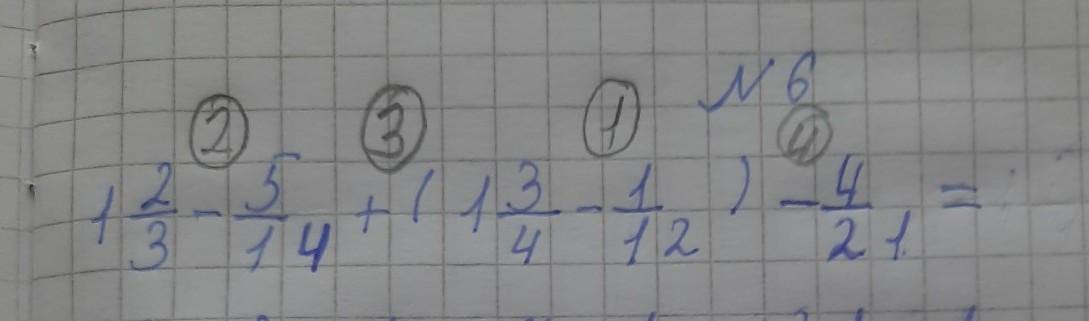 N 6
② ③ ① ④
1 2/3 - 5/14 + ( 1 3/4 - 1/12 ) - 4/21 =